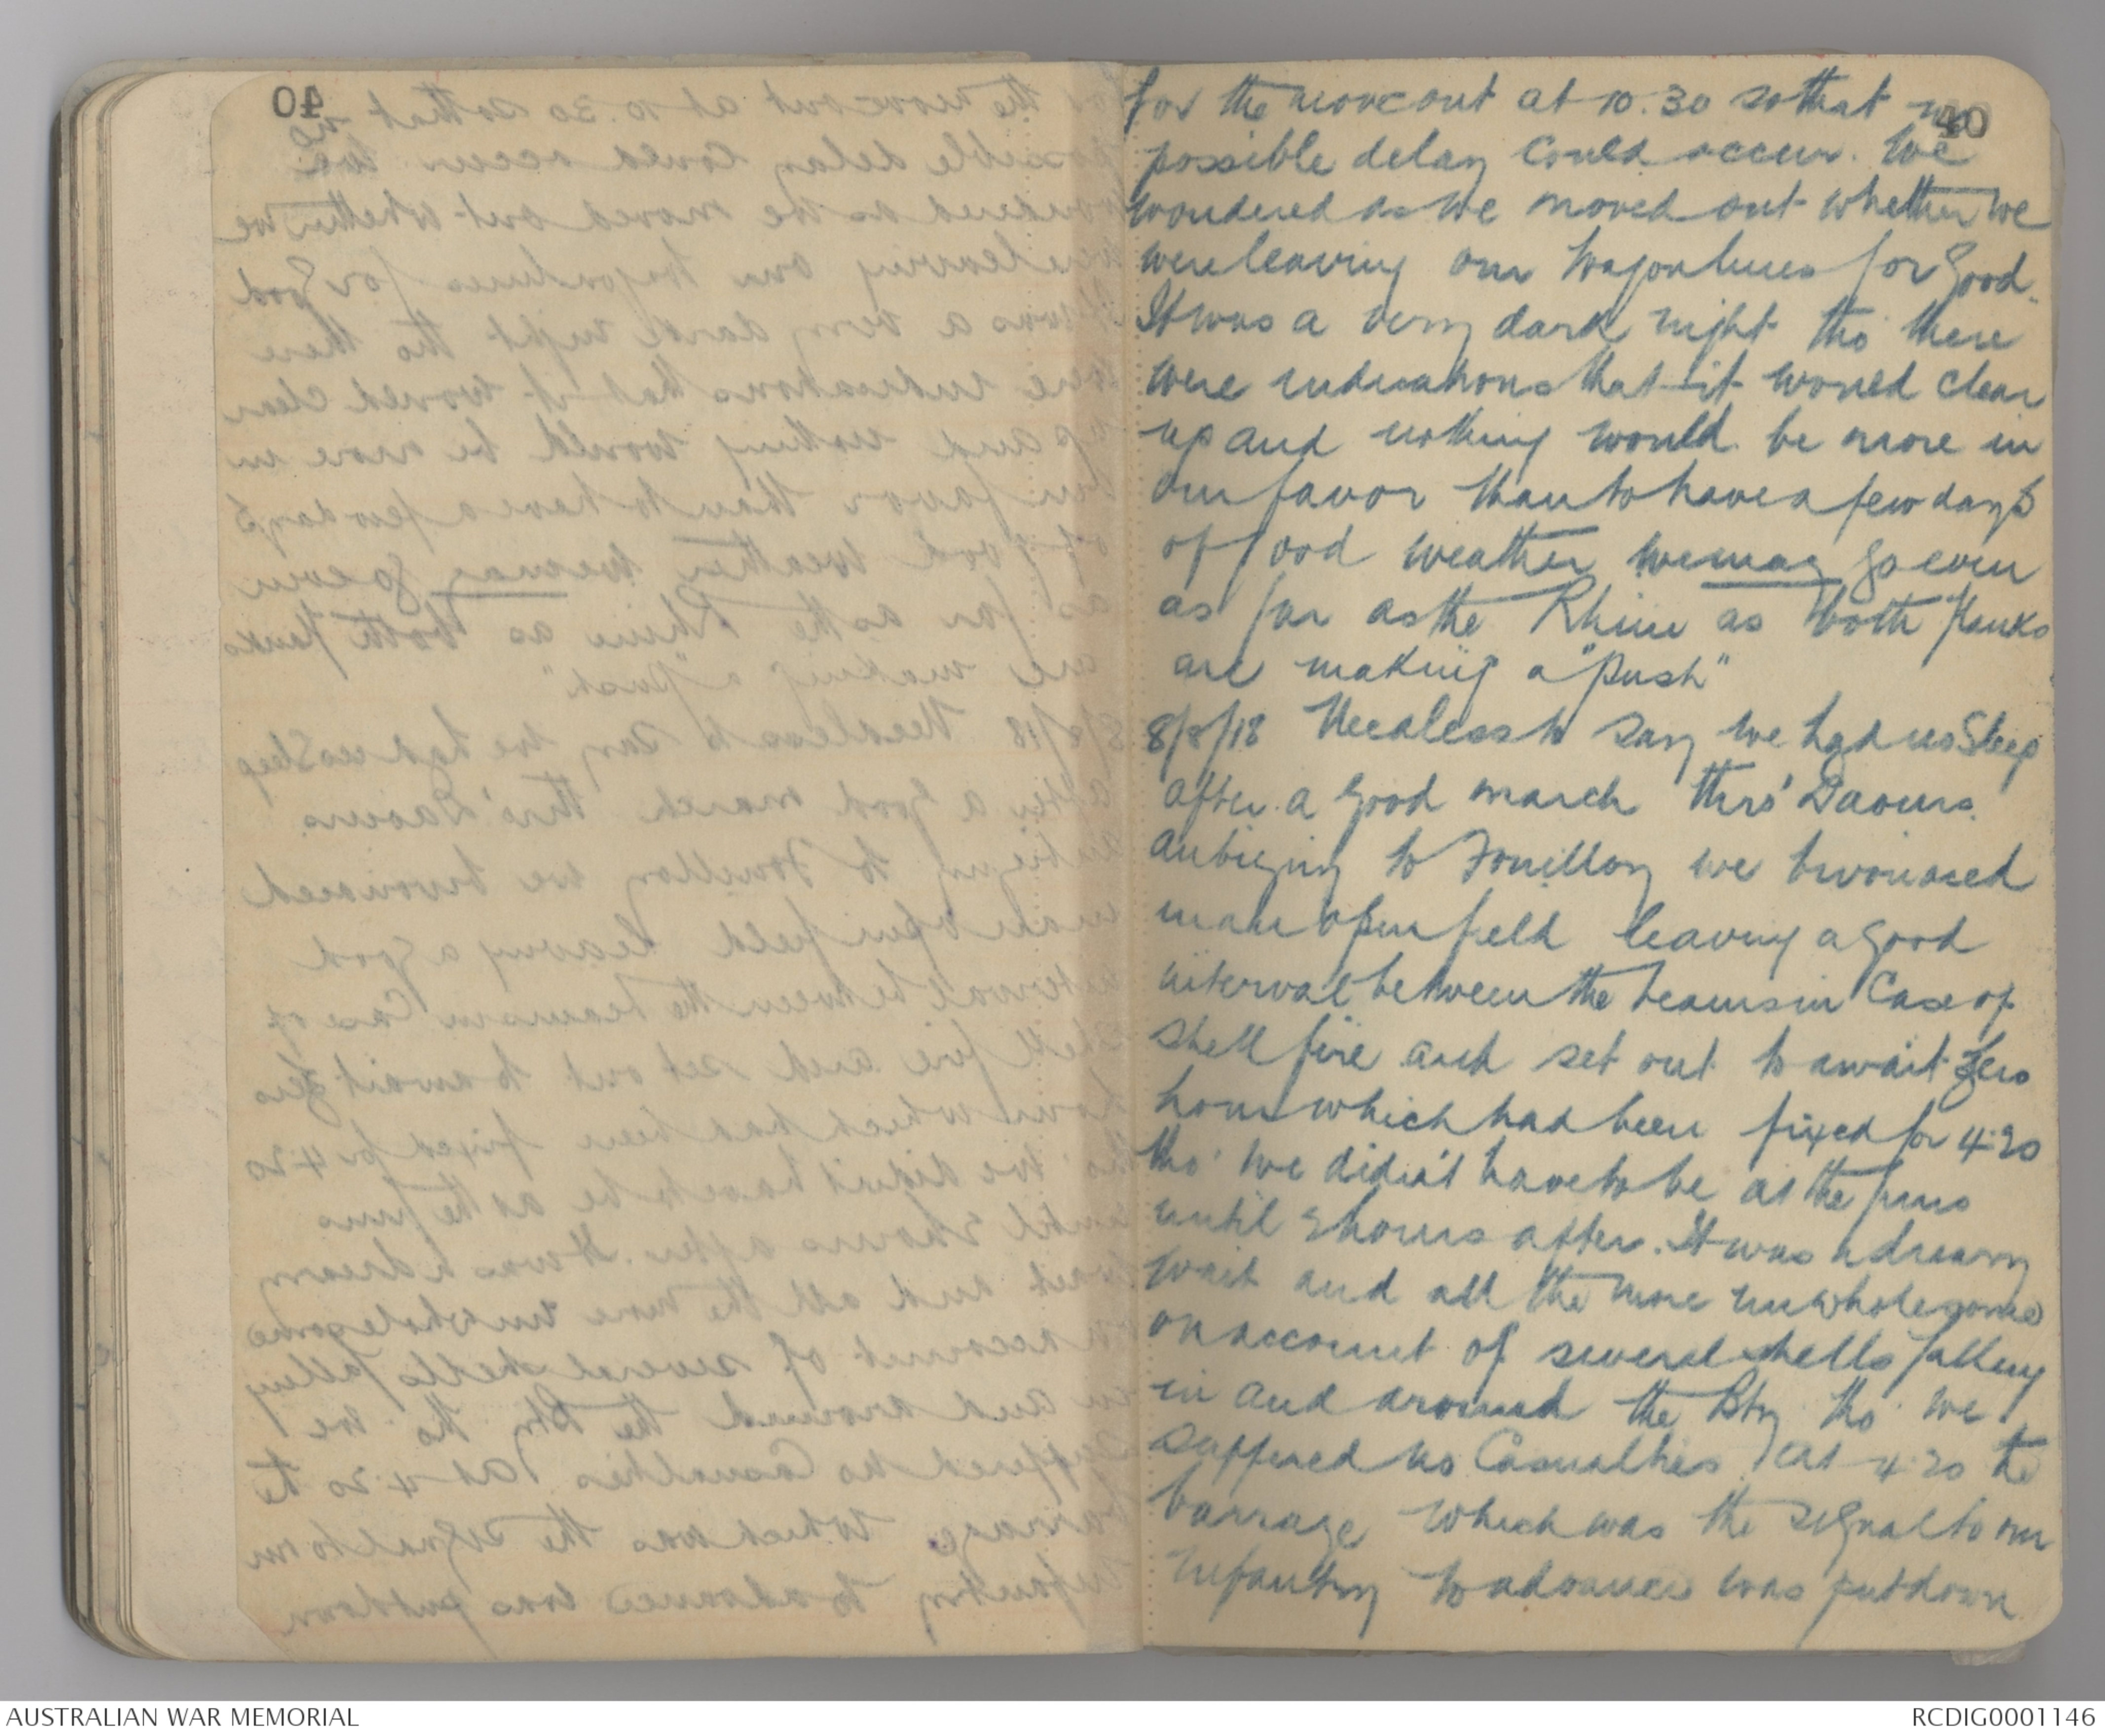 40
for the move out at 10.30 so that no
possible delay could occur. We
wondered as we moved out whether we
were leaving our wagon lines for good.
It was a very dark night tho' there
were indications that it would clear
up and nothing would be more in
our favor than to have a few days
of good weather we may go even
as far as the Rhine as both flanks
are making a "push"
8/8/18 Needless to say we had no sleep
after a good march thro' Daours.
Aubigny to Fouilloy we bivouaced
in an open field leaving a good
interval between the teams in case of
shell fire and set out to await zero
hour which had been fixed for 4.20
tho' we didn't have to be at the guns
until hours after. It was a dreary
wait and all the more unwholesome
on account of several shells falling
in and around the Bty tho' we
suffered no casualties. At 4.20 the
barrage which was the signal to our
Infantry to advance was put down
AUSTRALIAN WAR MEMORIAL
RCDIG0001146